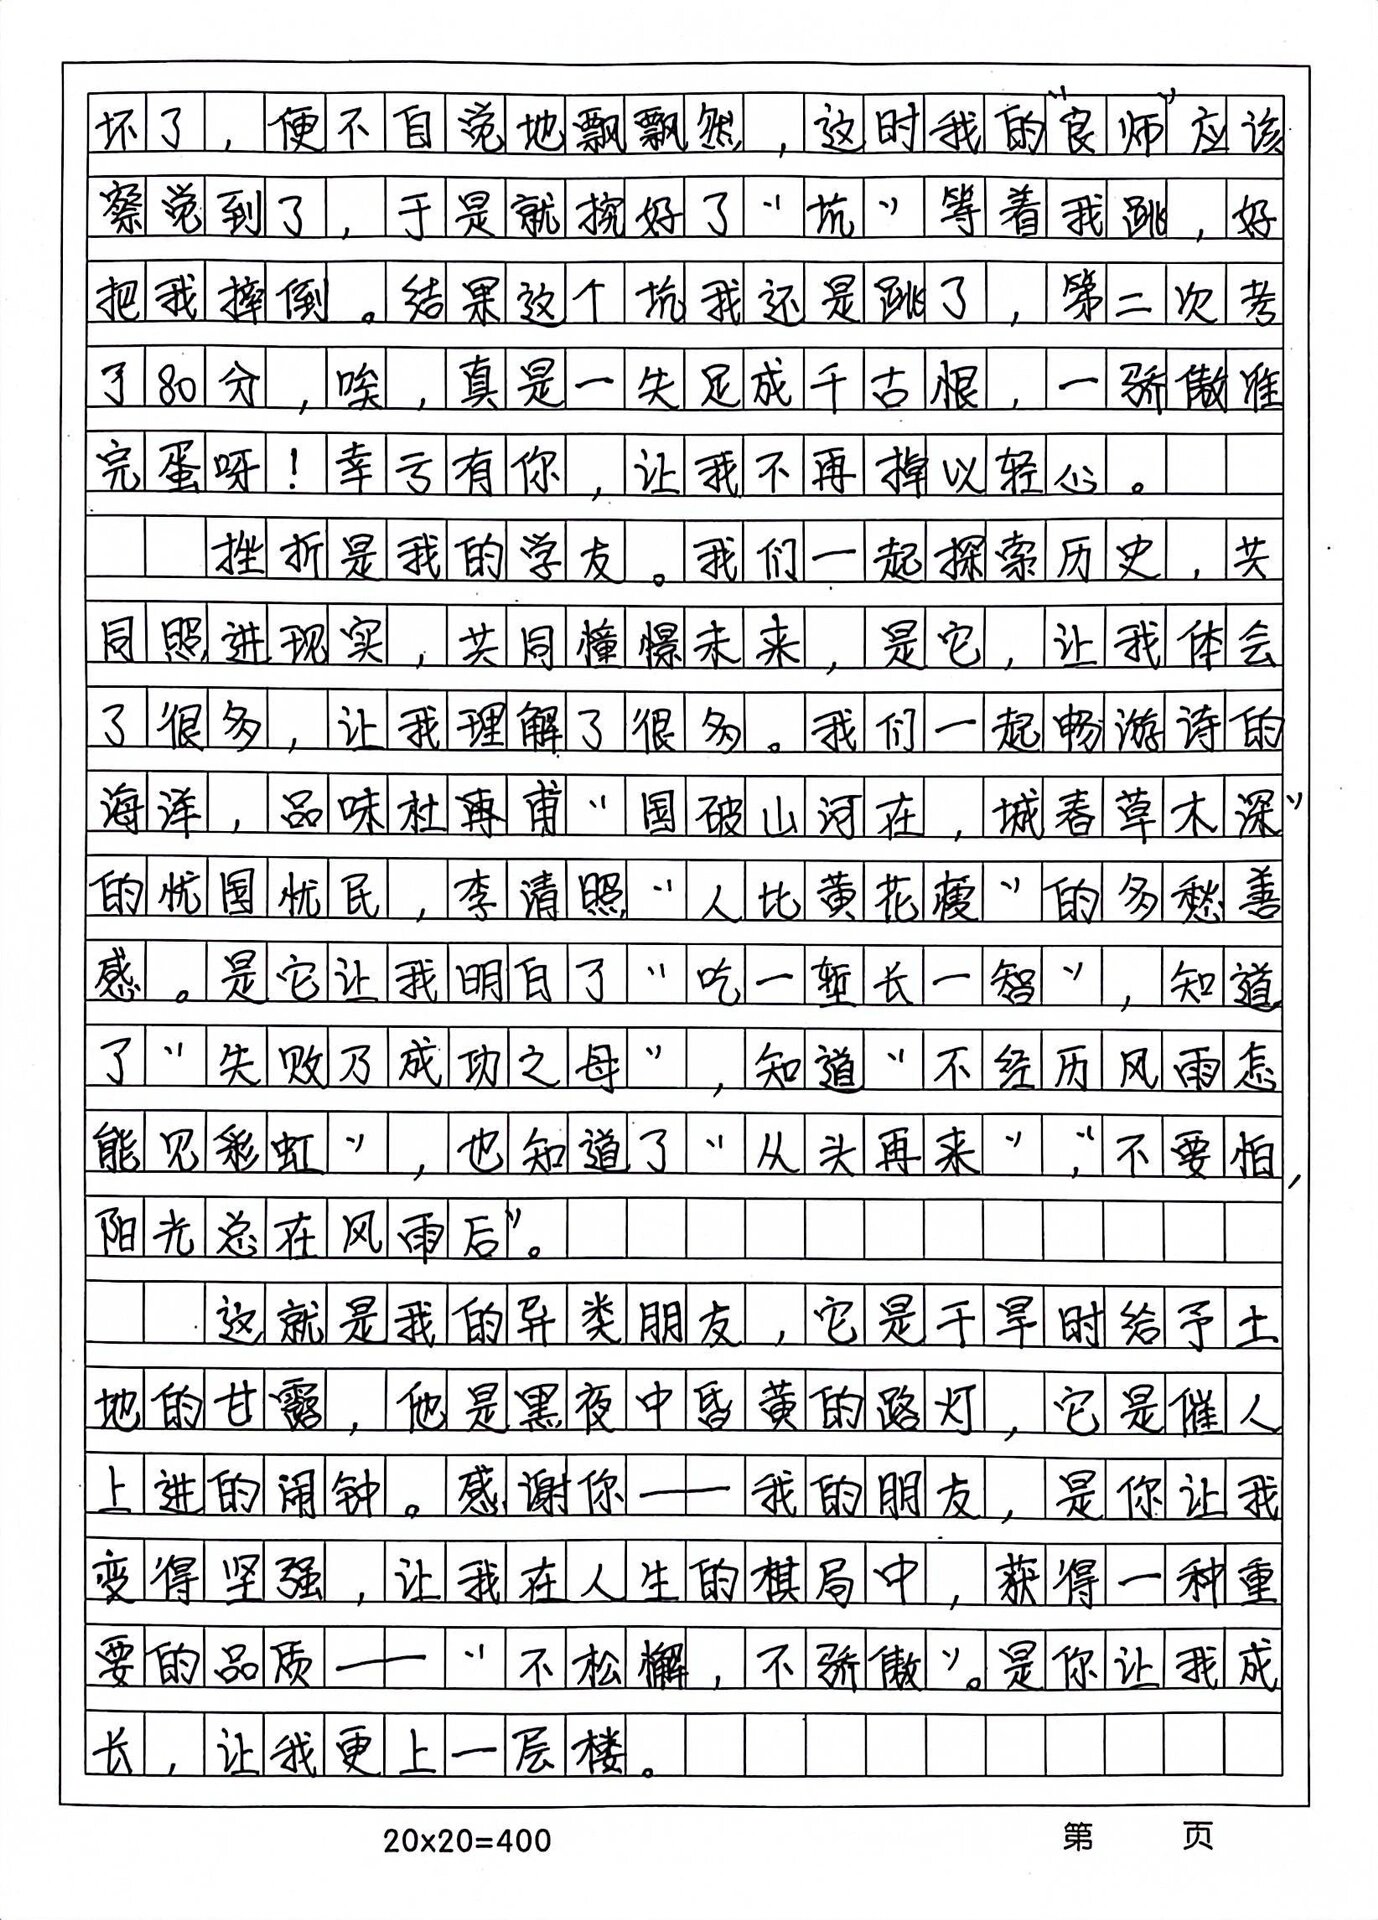 坏了，便不自觉地飘飘然，这时我的“良师”应该
察觉到了，于是就挖好了“坑”等着我跳，好
把我摔倒。结果这个坑我还是跳了，第二次考
了80分，唉，真是一失足成千古恨，一骄傲准
完蛋呀！幸亏有你，让我不再掉以轻心。
挫折是我的学友。我们一起探索历史，共
同照进现实，共同憧憬未来，是它，让我体会
了很多，让我理解了很多。我们一起畅游诗的
海洋，品味杜再甫“国破山河在，城春草木深”
的忧国忧民，李清照“人比黄花瘦”的多愁善
感。是它让我明白了“吃一堑长一智”，知道
了“失败乃成功之母”，知道“不经历风雨怎
能见彩虹”，也知道了“从头再来”，“不要怕，
阳光总在风雨后”。
这就是我的异类朋友，它是干旱时给予土
地的甘露，他是黑夜中昏黄的路灯，它是催人
上进的闹钟。感谢你——我的朋友，是你让我
变得坚强，让我在人生的棋局中，获得一种重
要的品质——“不松懈，不骄傲”。是你让我成
长，让我更上一层楼。
20x20=400 第 页